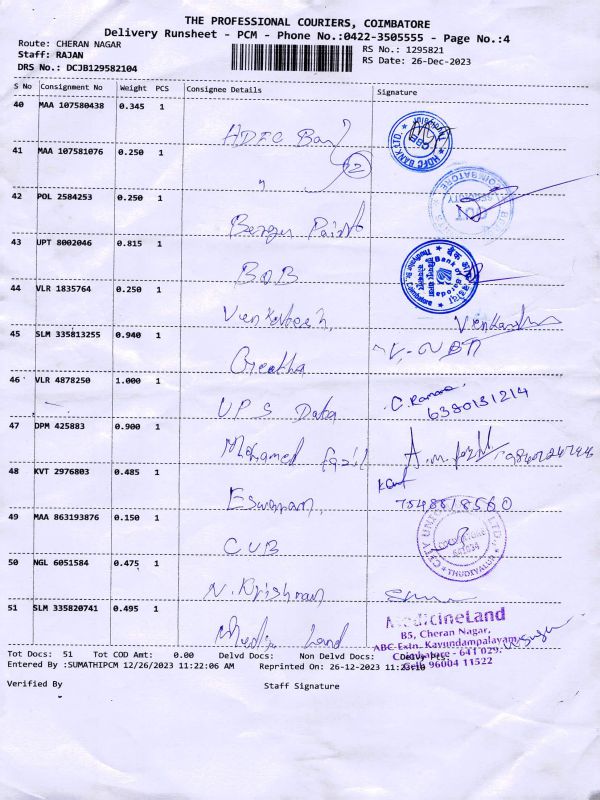 THE PROFESSIONAL COURIERS, COIMBATORE
Delivery Runsheet - PCM - Phone No.:0422-3505555 - Page No.:4
Route: CHERAN NAGAR
RS No.: 1295821
Staff: RAJAN
RS Date: 26-Dec-2023
DRS No.: DCJB129582104
S No Consignment No Weight PCS Consignee Details Signature
40 MAA 107580438 0.345 1
HDFC Bank
41 MAA 107581076 0.250 1
" 2
42 POL 2584253 0.250 1
Berger Paint
43 UPT 8002046 0.815 1
BOB
44 VLR 1835764 0.250 1
Venkatesh,
45 SLM 335813255 0.940 1
Geetha
46 VLR 4878250 1.000 1
UPS Data C. Ramana
6380131214
47 DPM 425883 0.900 1
Mohamed fazil A.m.fazil
48 KVT 2976803 0.485 1
Eswaran, 7548818560
49 MAA 863193876 0.150 1
CUB
50 NGL 6051584 0.475 1
N. Krishnan
51 SLM 335820741 0.495 1
Medicine Land
MedicineLand
B5, Cheran Nagar,
ABC Extn. Kavundampalayam,
Coimbatore - 641 029.
Cell: 96004 11522
Tot Docs: 51 Tot COD Amt: 0.00 Delvd Docs: Non Delvd Docs: Delvd Pcs:
Entered By :SUMATHIPCM 12/26/2023 11:22:06 AM Reprinted On: 26-12-2023
Verified By Staff Signature